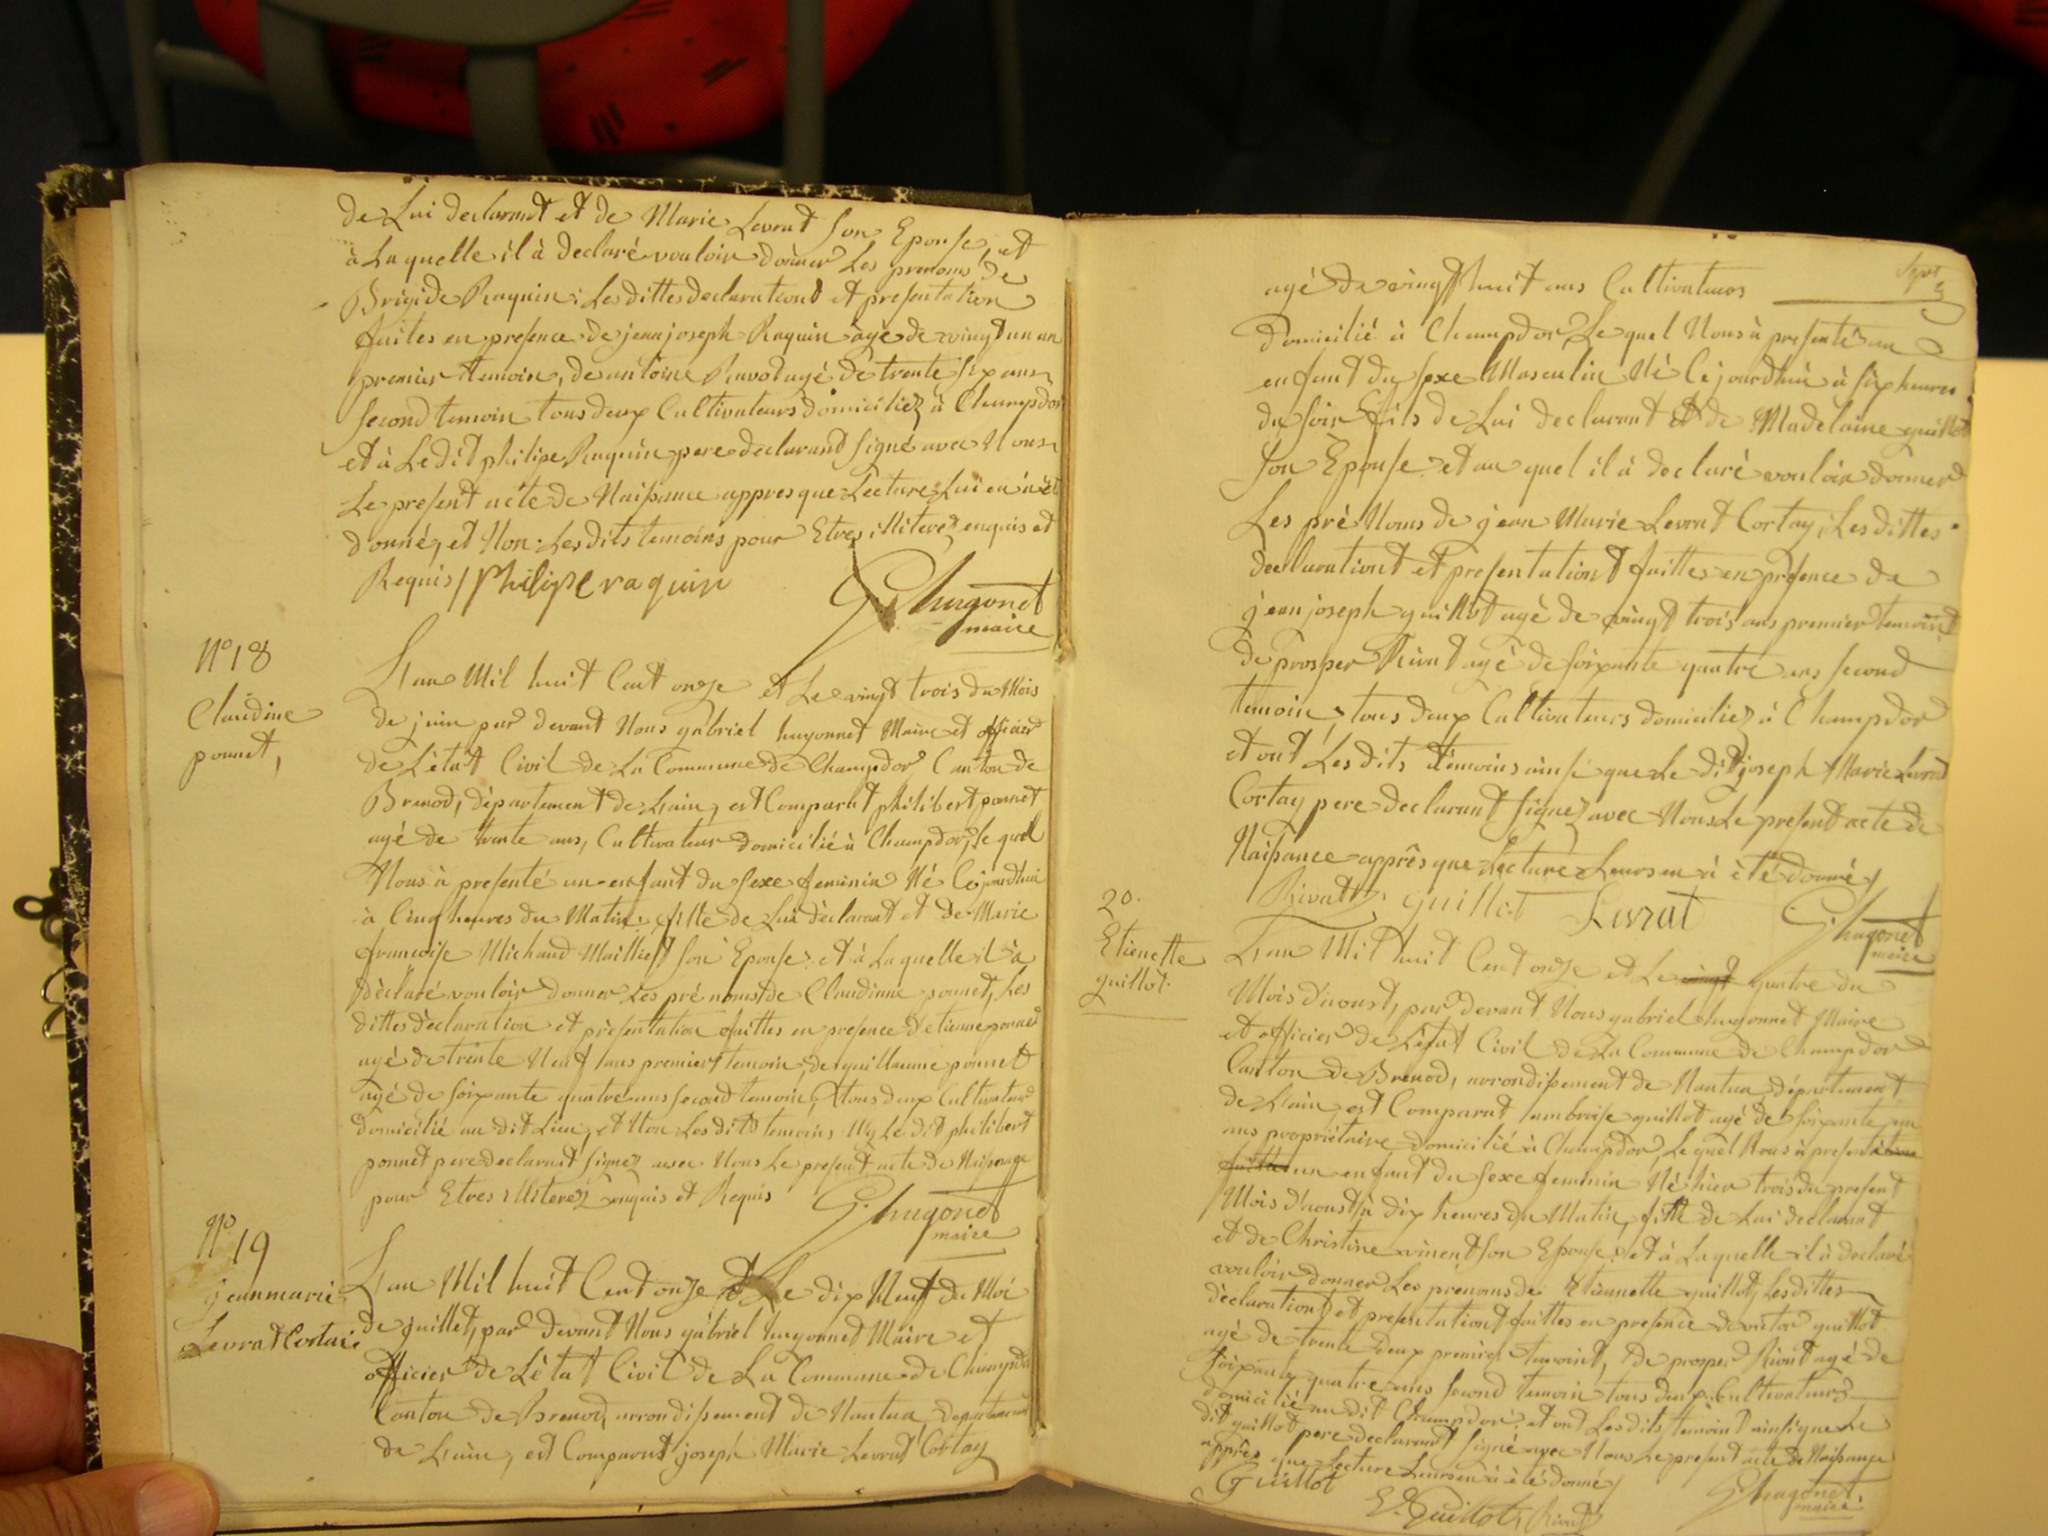 de Lui declarant et de Marie Levrat son Epouse, et
à Laquelle il à declaré vouloir donner Les prenoms de
Brigide Raquin; Les dittes declarationt et presentation
faites en presence de jean joseph Raquin âgé de vingt un an
premier temoin, de antoine Ravot agé de trente six ans
second temoin tous deux Cultivateurs domiciliez à Champdor
et à Ledit philipe Raquin pere declarant signé avec Nous
Le present acte de Naissance appres que Lecture Lui en à été
donné, et Non Les dits temoins pour Etres illiterez enquis et
Requis / philipe raquin
G. hugonet
maire
N° 18
Claudine
ponnet,
L'an Mil huit Cent onze et Le vingt trois du Mois
de juin par devant Nous gabriel hugonnet Maire et officier
de L'état Civil de La Commune de Champdor Canton de
Brenod, département de L'ain, est Comparut philibert ponnet
agé de trente ans, Cultivateur domicilié à Champdor, Le quel
Nous à presenté un enfant du sexe feminin Né Cejourd'hui
à Cinq heures du Matin, fille de Lui déclarant et de Marie
francoise Michaud Maillet son Epouse; et à Laquelle il à
déclaré vouloir donner Les pré noms de Claudinne ponnet, Les
dittes déclaration et présentation faittes en presence d'etienne ponnet
agé de trente Neuf ans premier temoin, de guillaume ponnet
agé de soixante quatre ans second temoin, tous deux Cultivateur
domicilié au dit Lieu, et Non Les dits temoins Ny Le dit philibert
ponnet pere declarant signez avec Nous Le present acte de Naissance
pour Etres illiterez enquis et Requis
G. hugonet
maire
N° 19
jeanmarie
Levrat Cortai
L'an Mil huit Cent onze et Le dix Neuf du Moi
de juillet, par devant Nous gabriel hugonnet Maire et
officier de L'état Civil de La Commune de Champdor
Canton de Brenod, arrondissement de Nantua, Departement
de L'ain, est Comparut joseph Marie Levrat Cortay
agé de vingt huit ans Cultivateurs
domicilié à Champdor Le quel Nous à presenté un
enfant du sexe Masculin Né Cejourdhui à six heures
du soir fils de Lui declarant et de Madelaine guillot
son Epouse et au quel il à declaré vouloir donner
Les pré Noms de jean Marie Levrat Cortay; Les dittes
declarationt et presentationt faittes en présence de
jean joseph guillot agé de vingt trois ans premier temoint
de prosper Rivat agé de soixante quatre ans second
temoin, tous deux Cultivateurs domiciliez à Champdor
et ont Les dits témoins ainsi que Le dit joseph Marie Levrat
Cortay pere declarant signez avec Nous Le present acte de
Naissance apprès que Lecture Leurs en à été donné /
Rivat guillot Levrat
G. hugonet
maire
20.
Etienette
guillot.
L'an Mil huit Cent onze et Le vingt quatre du
Mois d'aoust, par devant Nous gabriel hugonnet Maire
et officier de L'état Civil de La Commune de Champdor
Canton de Brenod, arrondissement de Nantua, département
de L'ain, est Comparut ambroise guillot agé de soixante un
ans propriétaire domicilié à Champdor, Le quel Nous à presenté
un enfant du sexe feminin Né hier trois du present
Mois d'aoust à dix heures du Matin, fille de Lui declarant
et de Christine vinent son Epouse; et à Laquelle il à declaré
vouloir donner Les prénoms de Etiennette guillot, Les dittes
déclarationt et presentationt faittes en presence de guillot
agé de trente deux premier temoint, de prosper Rivat agé de
soixante quatre ans second temoin tous deux Cultivateurs
domicilié au dit Champdor, et ont Les dits temoint ainsi que Le
dit guillot pere declarant signé avec Nous Le present acte de Naissance
apprès que Lecture Leurs en à été donné /
Guillot
Guillot, Rivat
G. hugonet
maire